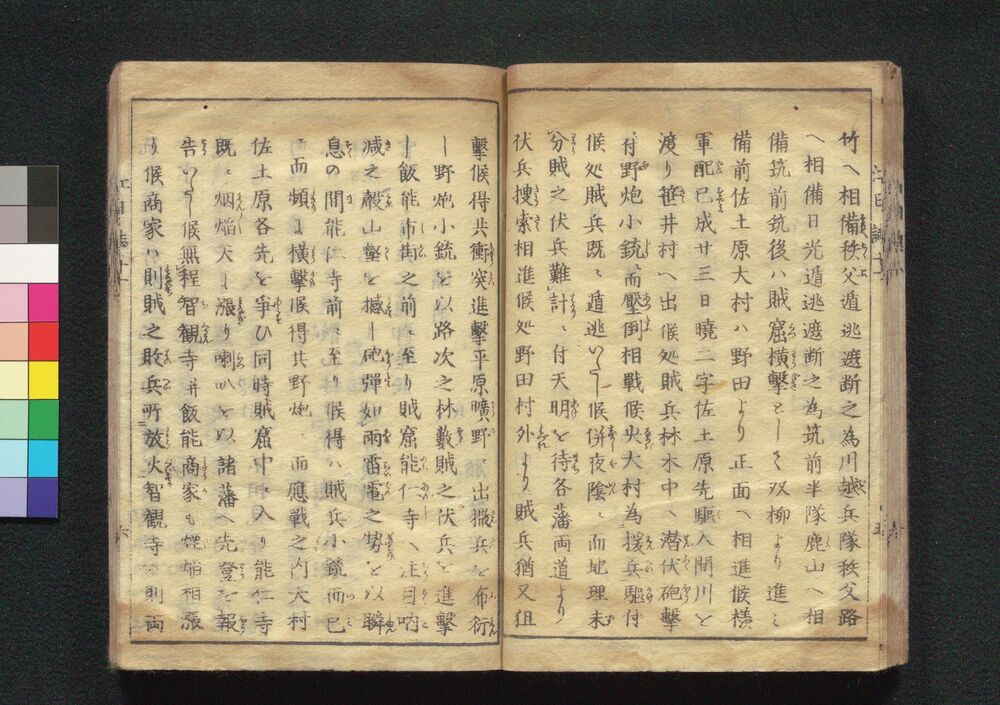 竹ヘ相備秩父遁逃遮断之為川越兵隊秩父路
ヘ相備日光遁逃遮断之為筑前半隊鹿山ヘ相
備筑前筑後ハ賊窟横撃として双柳より進ミ
備前佐土原大村ハ野田より正面ヘ相進候横
軍配已成廿三日暁二字佐土原先駆入間川を
渡り笹井村ヘ出候処賊兵林木中ヘ潜伏砲撃
付野炮小銃ニ而壓倒相戦候央大村為援兵駆付
候処賊兵既ニ遁逃いたし候併夜陰ニ而地理未
分賊之伏兵難計ニ付天明を待各藩両道より
伏兵捜索相進候処野田村外より賊兵猶又狙
撃候得共衝突進撃平原曠野ニ出撒兵を布衍
し野炮小銃を以路次之林藪賊之伏兵を進撃
し飯能市街之前ニ至り賊窟能仁寺ヘ注目吶
減之嚴山壑を撼し砲弾如雨雷電之勢を以瞬
息の間能仁寺前ニ至り候得ハ賊兵小銃而已
ニ而頻ニ横撃候得共野炮ニ而應戦之内大村
佐土原各先を争ひ同時賊窟中ヘ入り能仁寺
既ニ烟焔天ニ漲り喇叭を以諸藩ヘ先登を報
告いたし候無程智観寺并飯能商家も煙焔相漲
り候商家ハ則賊之敗兵所放火智観寺ハ則両